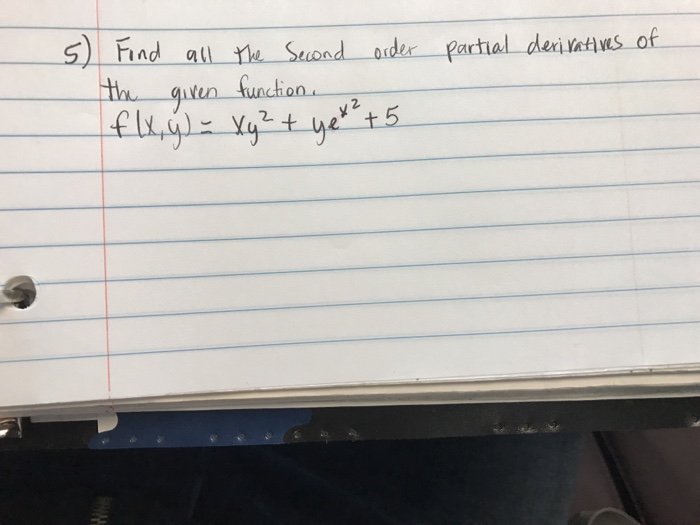 5) Find all the Second order partial derivatives of
the given function.
f(x,y) = xy² + ye^x² + 5